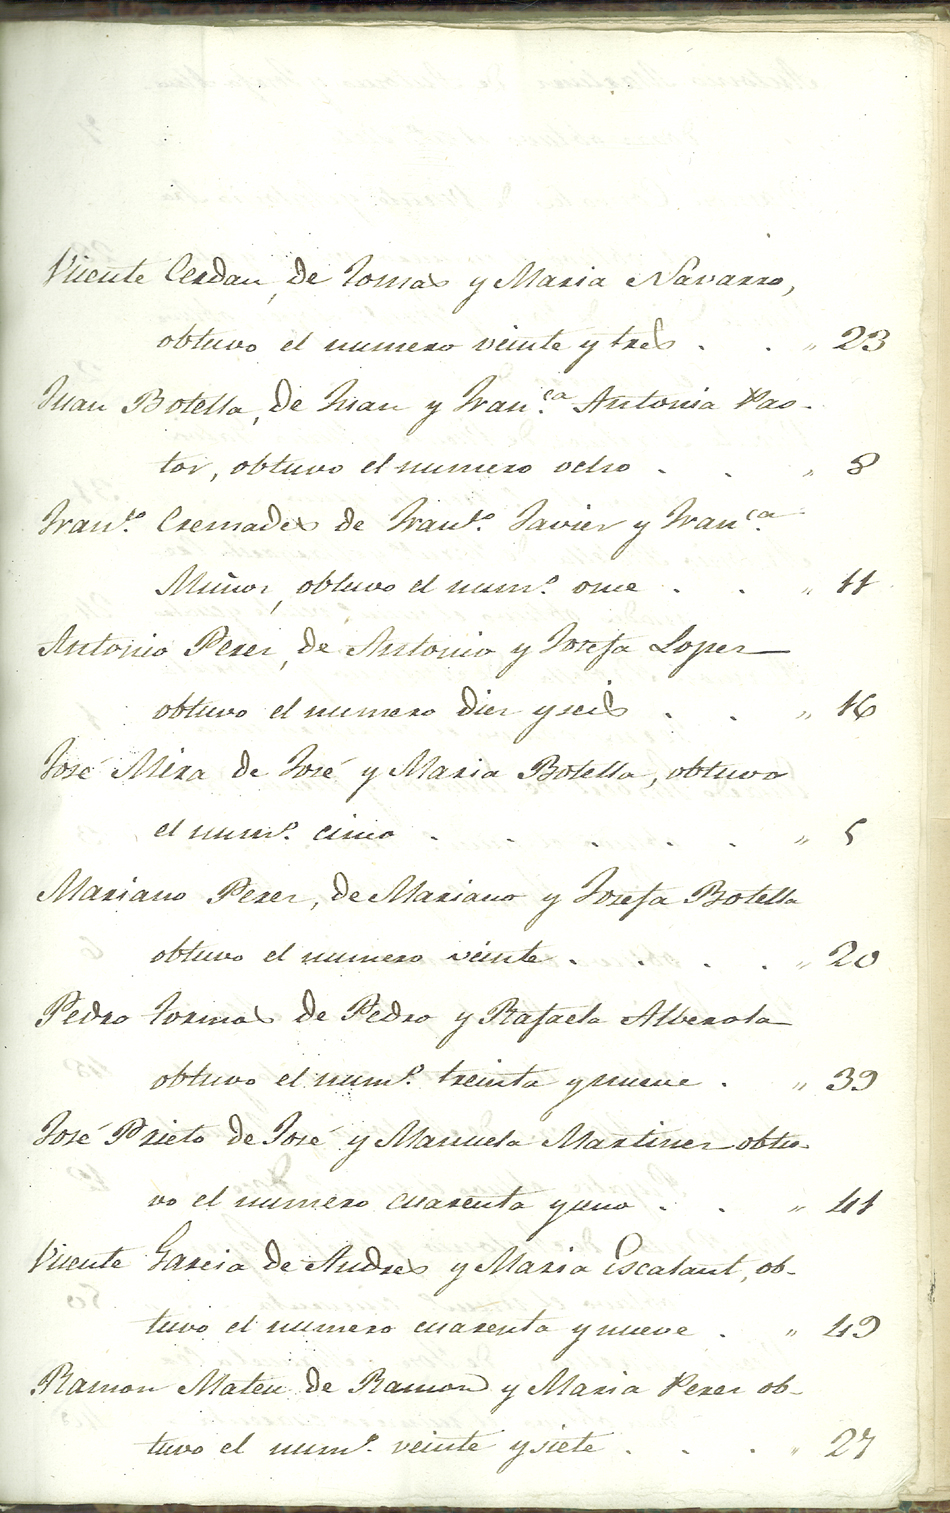 Vicente Cerdan, de Tomas y Maria Navarro,
obtuvo el numero veinte y tres . . „ 23
Juan Botella, de Juan y Fran.ca Antonia Pas-
tor, obtuvo el numero ocho . . „ 8
Fran.co Cremades de Fran.co Javier y Fran.ca
Muñoz, obtuvo el num.o once . . „ 11
Antonio Perez, de Antonio y Josefa Lopez
obtuvo el numero diez y seis . . „ 16
José Mira de José y Maria Botella, obtuvo
el num.o cinco . . . . . „ 5
Mariano Perez, de Mariano y Josefa Botella
obtuvo el numero veinte . . . . „ 20
Pedro Tormos de Pedro y Rafaela Alberola
obtuvo el num.o treinta y nueve . „ 39
José Prieto de José y Manuela Martinez obtu-
vo el numero cuarenta y uno . . „ 41
Vicente Garcia de Andres y Maria Escalant, ob-
tuvo el numero cuarenta y nueve . „ 49
Ramon Mateu de Ramon y Maria Perez ob-
tuvo el num.o veinte y siete . . . „ 27